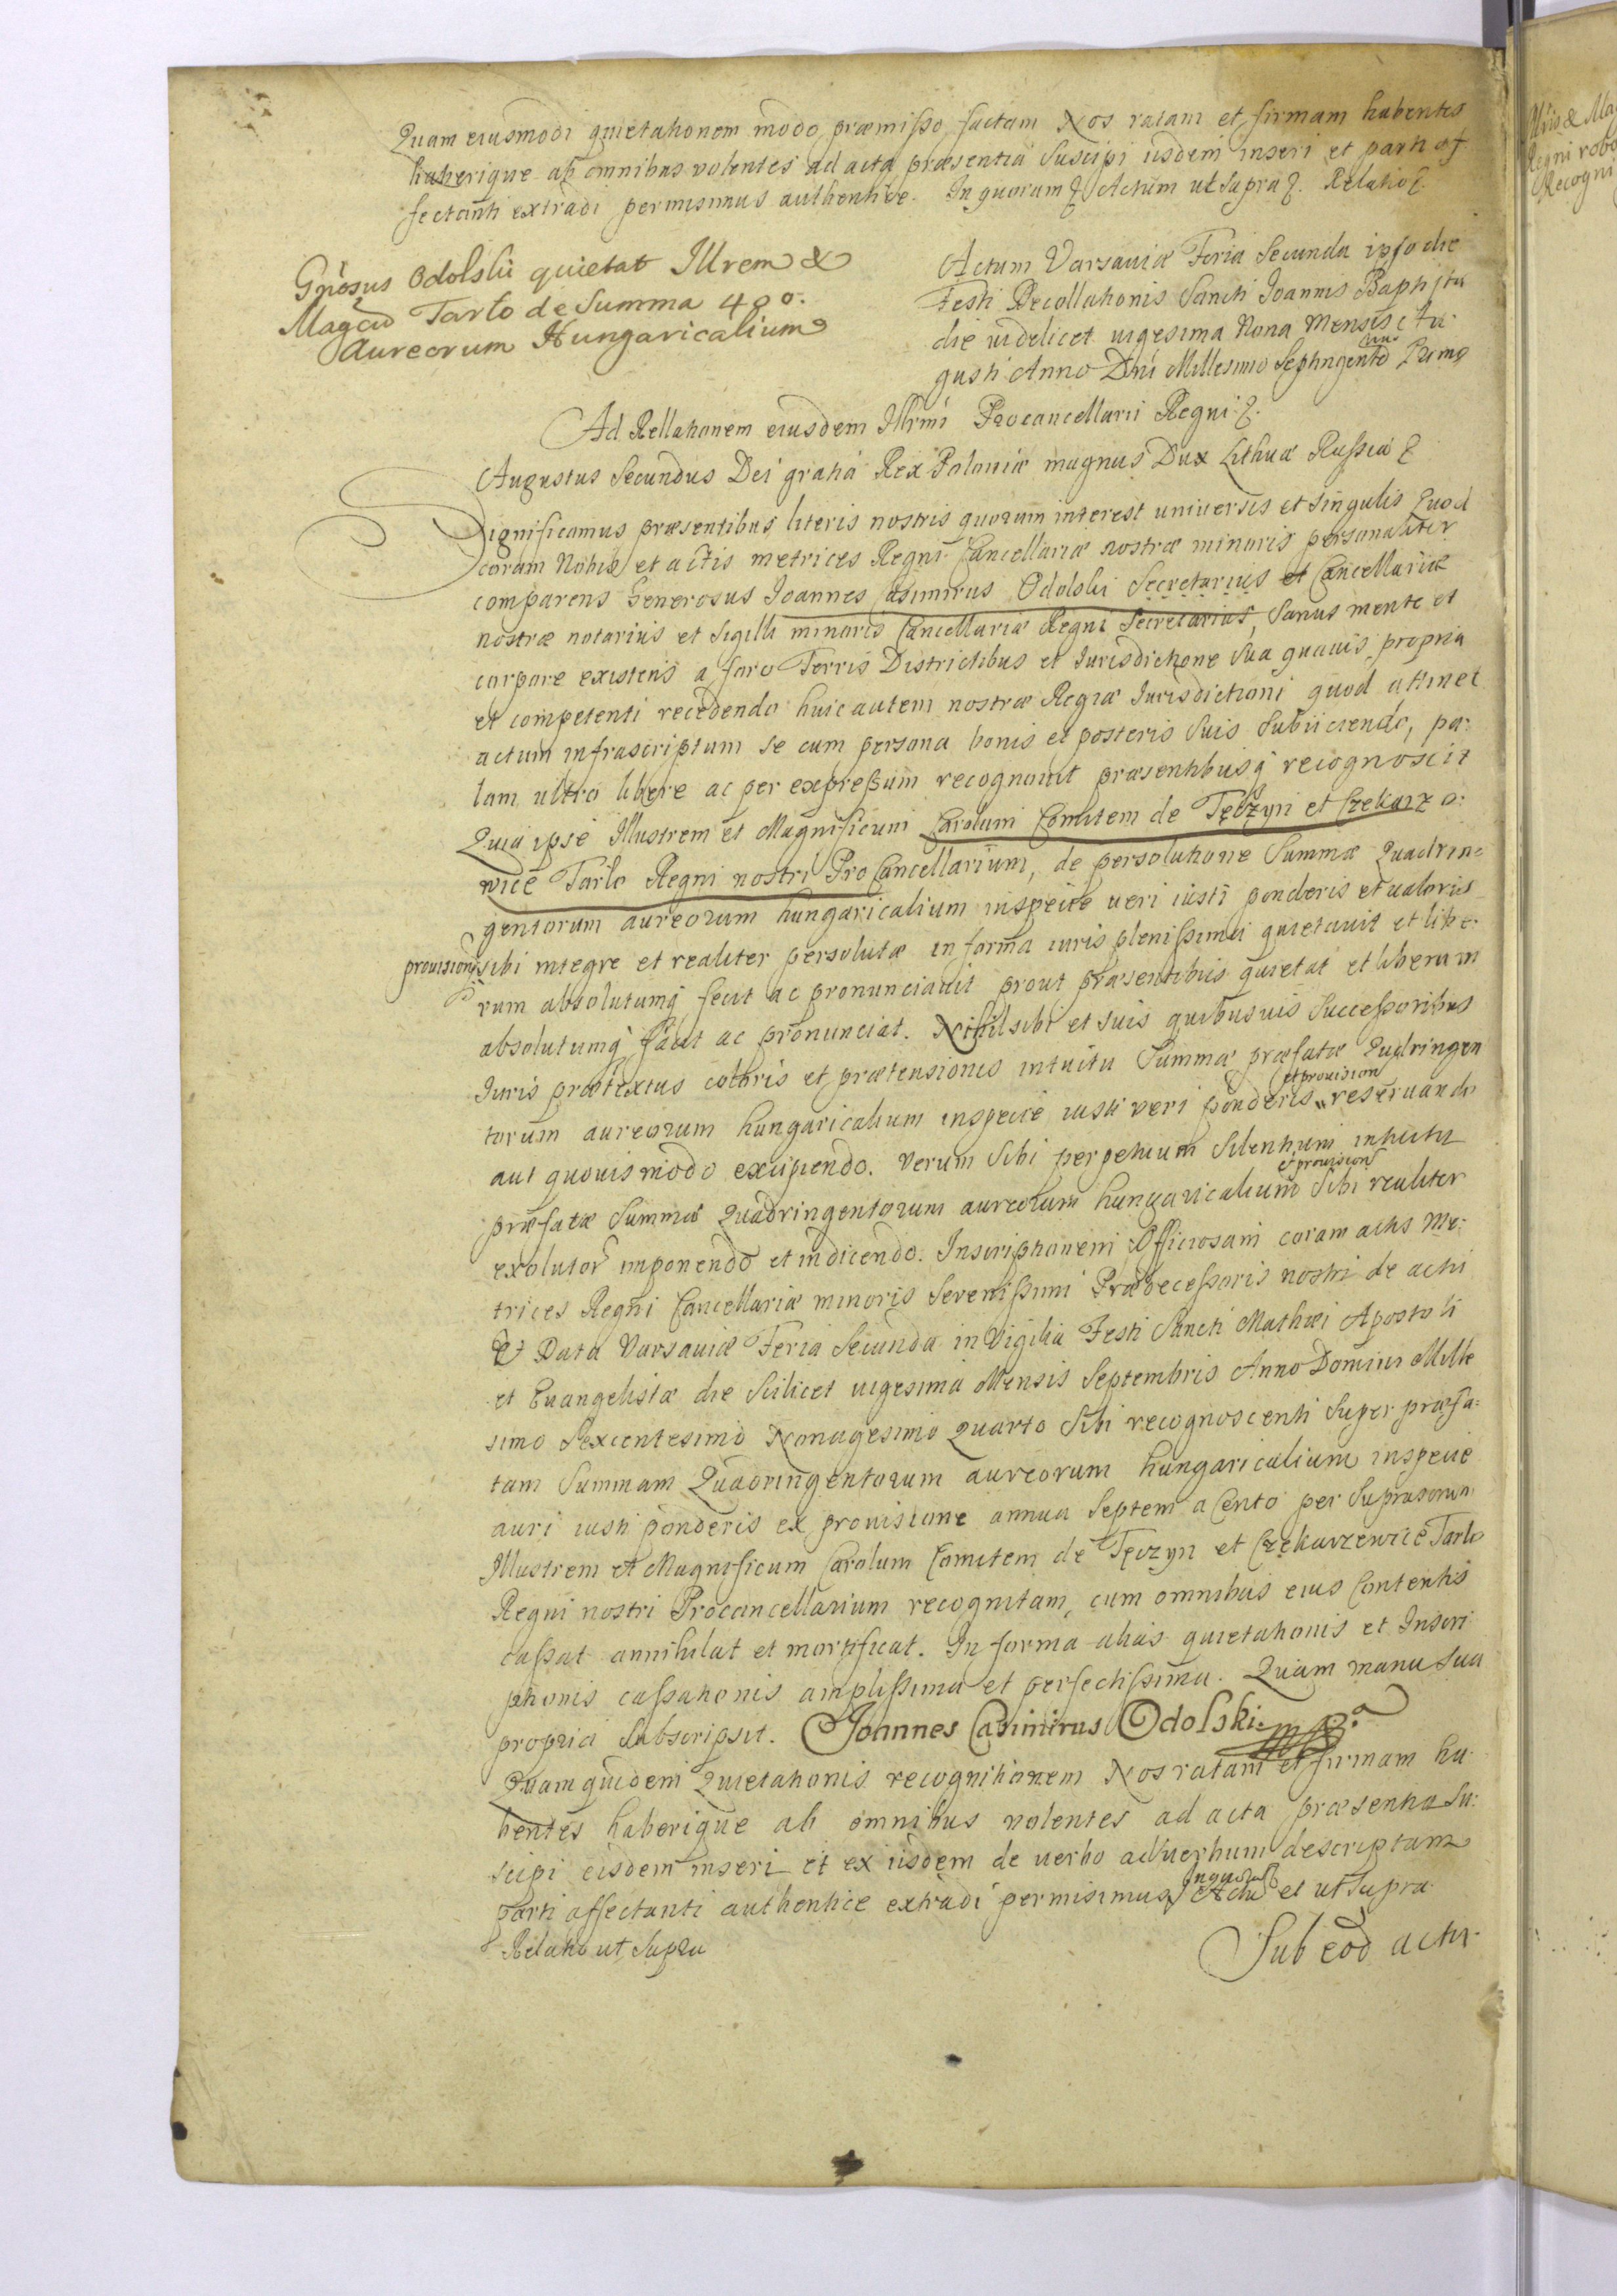 Quam eiusmodi quietationem modo præmisso factam Nos ratam et firmam habentes
haberique ab omnibus volentes ad acta præsentia Suscipi iisdem inseri et parti af
fectanti extradi permisimus authentice. In quorum Actum ut Supra. Relatio
Gñosus Odolski quietat Illrem &
Magcũ Tarło de Summa 400.
Aureorum Hungaricalium
Actum Varsaviæ Feria Secunda ipso die
Festi Decollationis Sancti Joannis Baptistæ
die videlicet vigesima Nona Mensis Au
gusti Anno Dñi Millesimo Septingentesimo Primo
Ad Rellationem eiusdem Illrmi Procancellarii Regni
Augustus Secundus Dei gratia Rex Poloniæ magnus Dux Lithuæ Russiæ
Significamus præsentibus literis nostris quorum interest universis et singulis Quod
coram Nobis et actis metrices Regni Cancellariæ nostræ minoris personaliter
comparens Generosus Joannes Casimirus Odolski Secretarius et Cancellariæ
nostræ notarius et Sigilli minoris Cancellariæ Regni Secretarius, Sanus mente et
corpore existens a foro Terris Districtibus et Jurisdictione Sua quavis propria
et competenti recedendo huic autem nostræ Regiæ Jurisdictioni quod attinet
actum infrascriptum se cum persona bonis et posteris Suis Subiiciendo, pa:
lam ultro libere ac per expressum recognovit præsentibusq recognoscit
Quia ipse Illustrem et Magnificum Carolum Comitem de Tęczyn et Czekarzo:
wice Tarło Regni nostri ProCancellarium, de persolutione Summæ Quadrin=
gentorum aureorum hungaricalium inspecie veri iusti ponderis et valoris
provision sibi integre et realiter persolutæ in forma iuris plenissima quietavit et libe:
rum absolutumq fecit ac pronunciavit prout præsentibus quietat et liberum
absolutumq facit ac pronunciat. Nihil sibi et suis quibusvis Successoribus
Juris prætextus coloris et prætensionis intuitu Summæ præfatæ Qudringen
et provision
torum aureorum hungaricalium inspecie iusti veri ponderis reservando
aut quovis modo excipiendo. Verum Sibi perpetuum Silentium intuitu
et provision
præfatæ Summæ Quadringentorum aureorum hungaricalium Sibi realiter
exolutor imponendo et indicendo. Inscriptionem Officiosam coram actis Me:
trices Regni Cancellariæ minoris Serenissimi Prædecessoris nostri de actu
Et Data Varsaviæ Feria Secunda in Vigilia Festi Sancti Mathæi Apostoli
et Evangelistæ die Scilicet vigesima Mensis Septembris Anno Domini Mille
simo Sexcentesimo Nonagesimo Quarto Sibi recognoscenti Super præfa:
tam Summam Quadringentorum aureorum hungaricalium inspecie
auri iusti ponderis ex provisione annua Septem a Cento per Suprascrip
Illustrem et Magnificum Carolum Comitem de Tęczyn et Czekarzewice Tarło
Regni nostri Procancellarium recognitam, cum omnibus eius Contentis
cassat annihilat et mortificat. In forma alias quietationis et Inscri
ptionis cassationis amplissima et perfectissima. Quam manu sua
propria Subscripsit. Joannes Casimirus Odolski mp.
Quam quidem Quietationis recognitionem Nos ratam et firmam ha:
bentes haberique ab omnibus volentes ad acta præsentia Su:
scipi eisdem inseri et ex iisdem de verbo ad verbum descriptam
In quorum
parti affectanti authentice extradi permisimus Actu et ut Supra
Relatio ut Supra
Sub eod actu